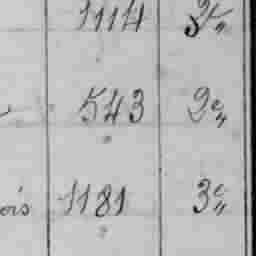 1114 3e„
543 2e„
ois 1181 3e„